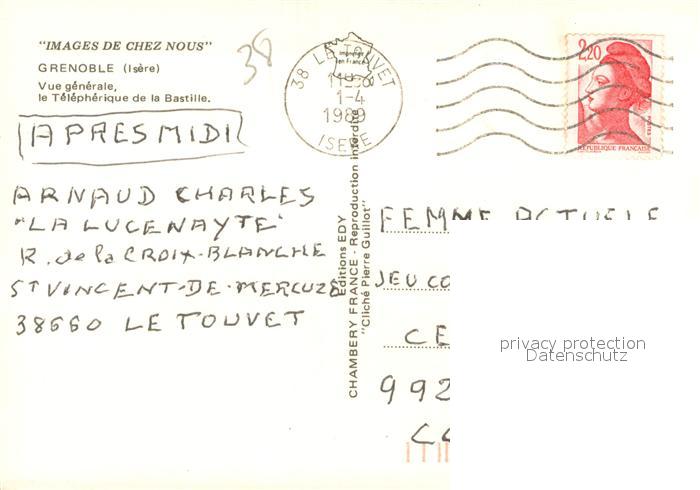 "IMAGES DE CHEZ NOUS"
GRENOBLE (Isère)
Vue générale,
le Téléphérique de la Bastille.
38
APRES MIDI
ARNAUD CHARLES
"LA LUCENAYTE"
R. de la CROIX-BLANCHE
ST VINCENT-DE-MERCUZE
38660 LE TOUVET
Editions EDY
CHAMBERY FRANCE - Reproduction interdite
"Cliché Pierre Guillot"
38 LE TOUVET
1-4
1989
ISERE
Imprimé
en France
2,20
POSTES
REPUBLIQUE FRANÇAISE
FEMME ACTUELLE
JEU CO
CE
992
privacy protection
Datenschutz